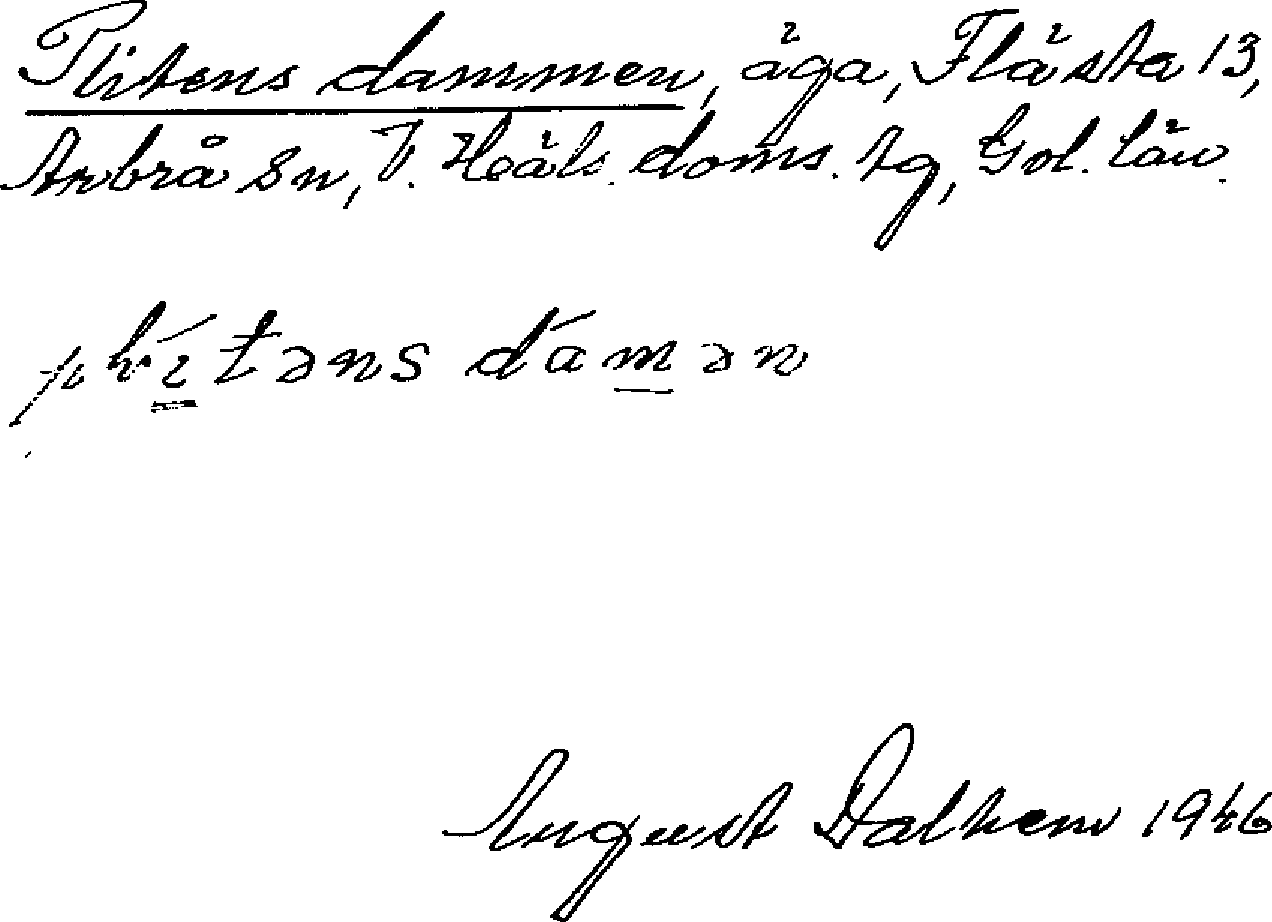 Plitens dammen, äga, Flästa 13,
Arbrå sn, V. Häls. doms. tg, Gvl. län.
dámən
August Dalhem 1946